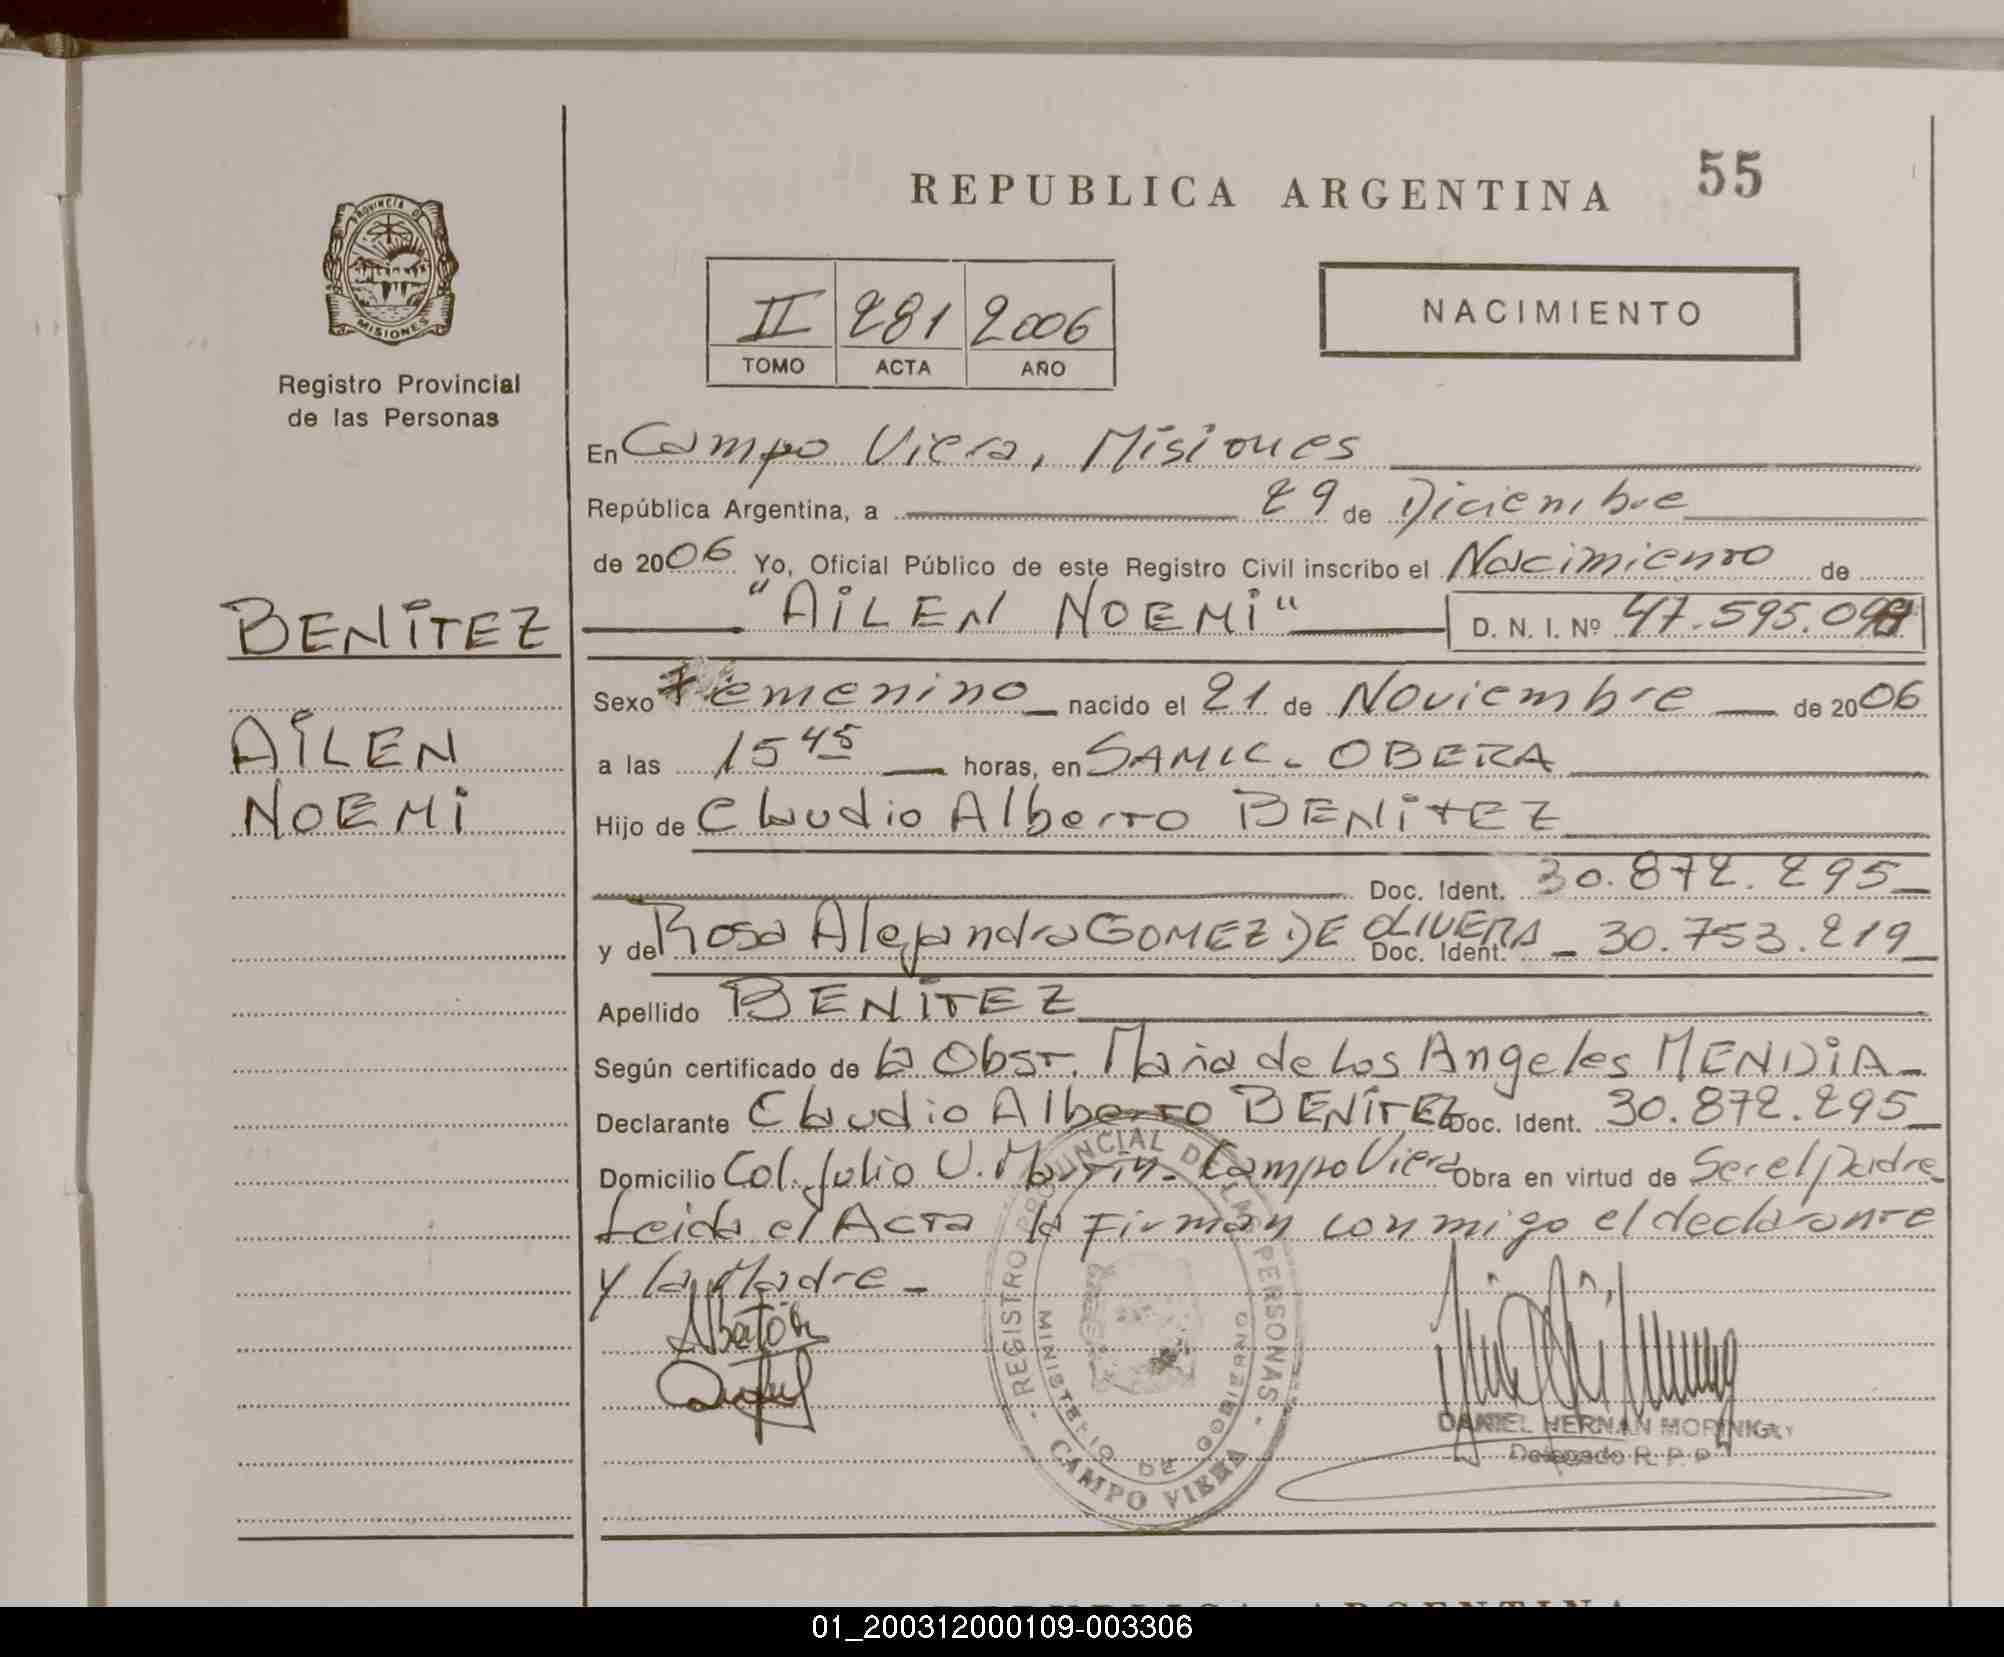 REPUBLICA ARGENTINA 55
PROVINCIA DE
MISIONES
Registro Provincial
de las Personas
II 281 2006
TOMO ACTA AÑO
NACIMIENTO
En Campo Viera, Misiones
República Argentina, a 29 de Diciembre
de 2006 Yo, Oficial Público de este Registro Civil inscribo el Nacimiento de
"AiLEN NOEMi" D. N. I. Nº 47.595.09
BENiTEZ
AiLEN
NOEMi
Sexo Femenino nacido el 21 de Noviembre de 2006
a las 15 45 horas, en SAMIC - OBERA
Hijo de Claudio Alberto BENiTEZ
Doc. Ident. 30.872.295
y de Rosa Alejandra GOMEZ DE OLIVERA Doc. Ident. 30.753.219
Apellido BENiTEZ
Según certificado de la Obst. Maria de Los Angeles MENDiA
Declarante Claudio Alberto BENiTEZ Doc. Ident. 30.872.295
Domicilio Col. Julio U. Martin - Campo Viera Obra en virtud de Ser el padre
Leida el Acta la Firman conmigo el declarante
y la Madre -
REGISTRO PROVINCIAL DE LAS PERSONAS
MINISTERIO DE GOBIERNO
CAMPO VIERA
DANIEL HERNAN MORINIGO
Delegado R. P. P.
REPUBLICA ARGENTINA
01_200312000109-003306